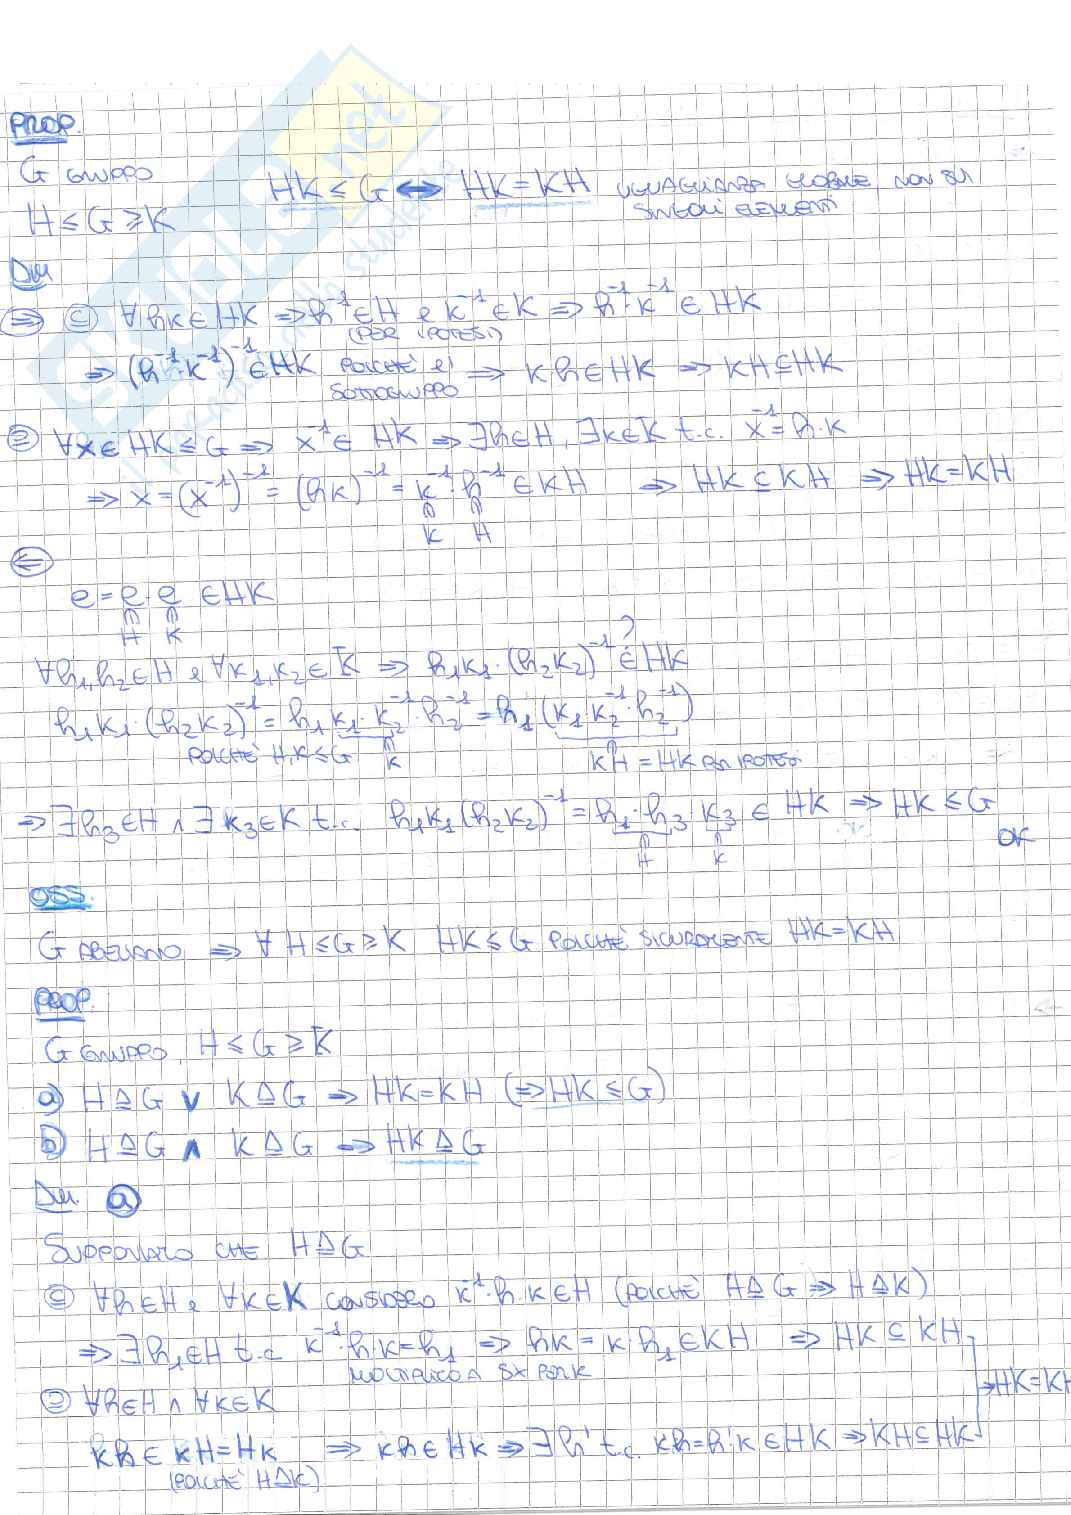 PROP.
G GRUPPO
H ≤ G ≥ K
HK ≤ G ⟺ HK = KH UGUAGLIANZA GLOBALE, NON SUI
SINGOLI ELEMENTI
Dim
⇒ ⊆ ∀hk∈HK ⇒ h⁻¹∈H e k⁻¹∈K ⇒ h⁻¹·k⁻¹ ∈ HK
(PER IPOTESI)
⇒ (h⁻¹·k⁻¹)⁻¹ ∈ HK POICHÉ È ⇒ kh∈HK ⇒ KH⊆HK
SOTTOGRUPPO
⊇ ∀x∈HK ≤ G ⇒ x⁻¹∈ HK ⇒ ∃h∈H, ∃k∈K t.c. x⁻¹=h·k
⇒ x = (x⁻¹)⁻¹ = (hk)⁻¹ = k⁻¹·h⁻¹ ∈ KH ⇒ HK ⊆ KH ⇒ HK=KH
K H
⇐
e = e·e ∈HK
H K
∀h₁,h₂∈H e ∀k₁,k₂∈K ⇒ h₁k₁·(h₂k₂)⁻¹ ∈? HK
h₁k₁·(h₂k₂)⁻¹ = h₁k₁·k₂⁻¹·h₂⁻¹ = h₁(k₁·k₂⁻¹·h₂⁻¹)
POICHÉ H,K≤G K KH = HK PER IPOTESI
⇒ ∃h₃∈H ∧ ∃k₃∈K t.c. h₁k₁(h₂k₂)⁻¹ = h₁·h₃·k₃ ∈ HK ⇒ HK ≤ G
H K
OK
OSS.
G ABELIANO ⇒ ∀ H ≤ G ≥ K HK ≤ G POICHÉ SICURAMENTE HK=KH
PROP.
G GRUPPO, H ≤ G ≥ K
a) H⊴G ∨ K⊴G ⇒ HK=KH (⇒ HK ≤ G)
b) H⊴G ∧ K⊴G ⇒ HK⊴G
Dim. a
SUPPONIAMO CHE H⊴G
⊆ ∀h∈H e ∀k∈K CONSIDERO k⁻¹·h·k∈H (POICHÉ H⊴G ⇒ H⊴K)
⇒ ∃h₁∈H t.c k⁻¹·h·k=h₁ ⇒ hk = k·h₁∈KH ⇒ HK ⊆ KH
MOLTIPLICO A SX PER K
⇒ HK=KH
⊇ ∀h∈H ∧ ∀k∈K
kh∈ kH=Hk ⇒ kh∈Hk ⇒ ∃h' t.c. kh=h'k∈HK ⇒ KH⊆HK
(POICHÉ H⊴K)